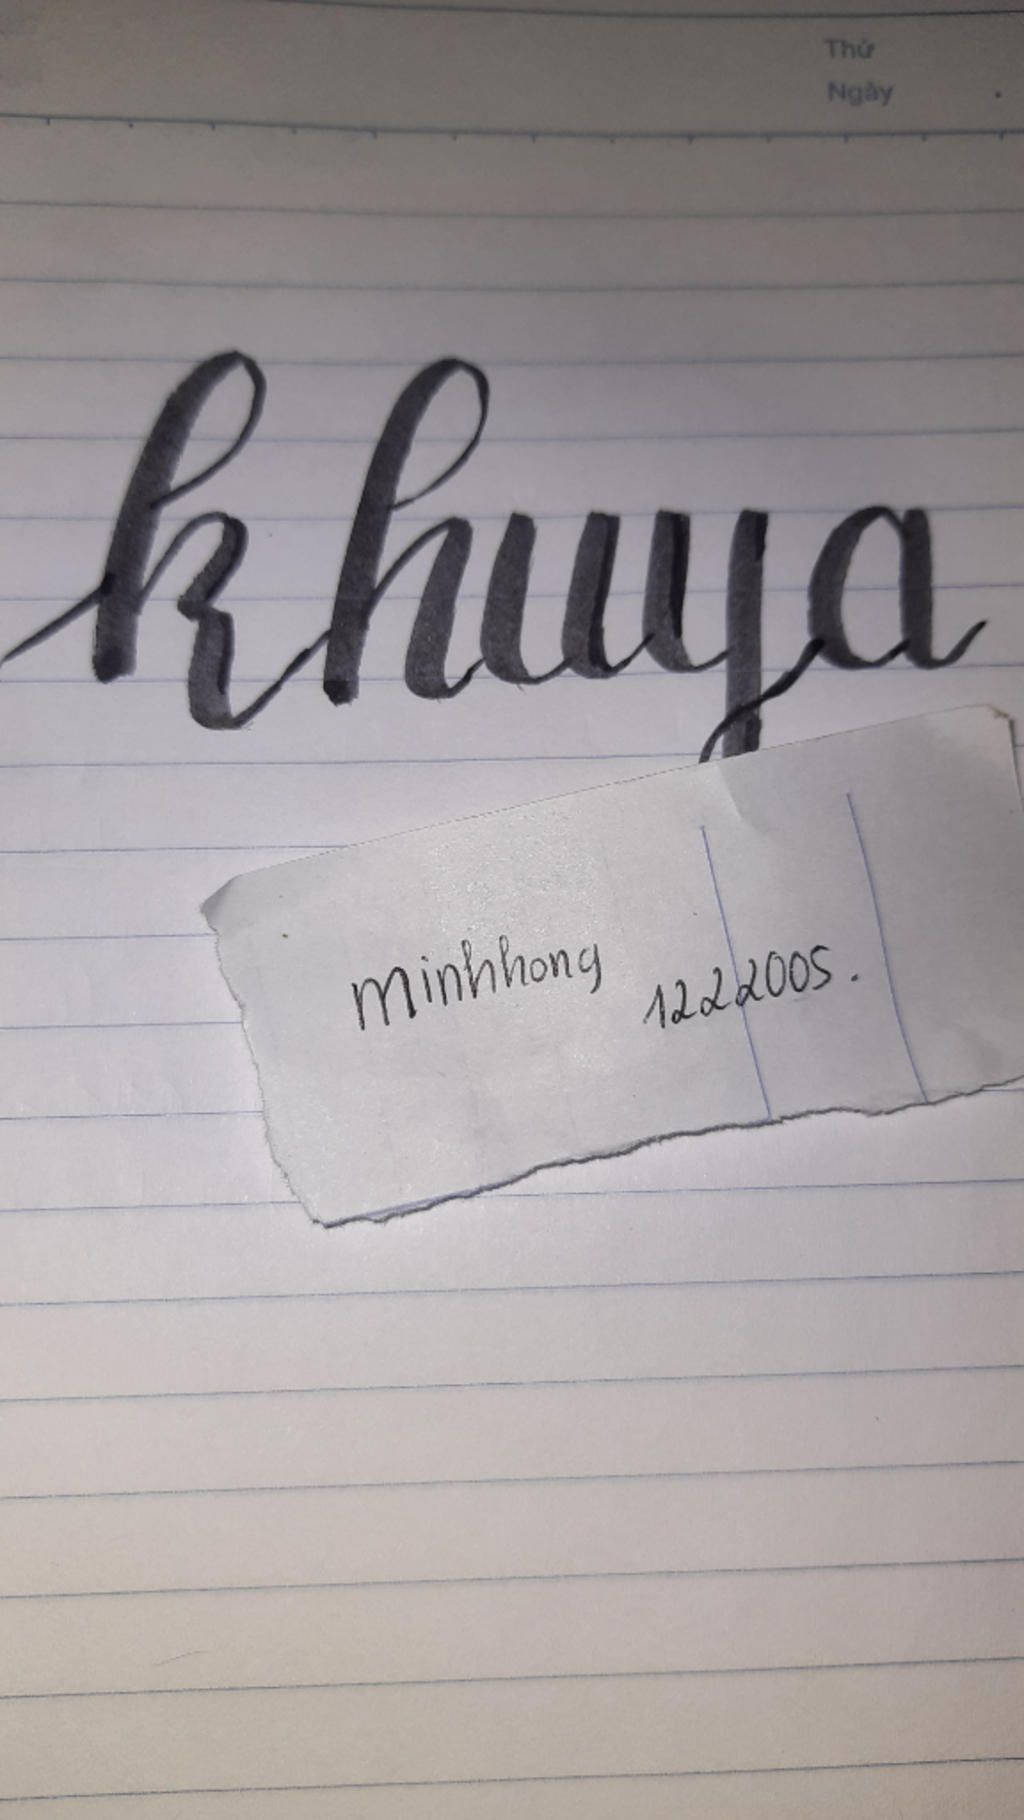 Thứ
Ngày
khuya
minhhong 1222005.